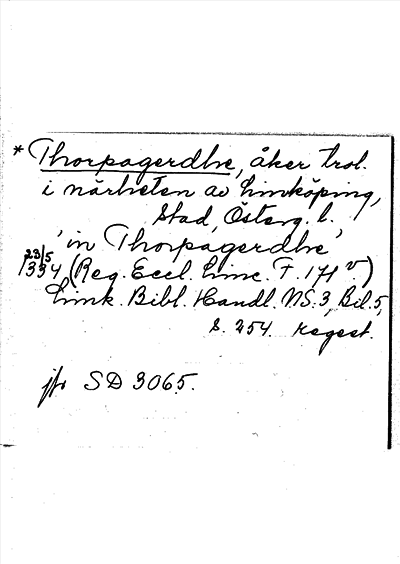 * Thorpagerdhe, åker trol.
i närheten av Linköping,
stad, Österg. l.
'in Thorpagerdhe'
23/5
1334 (Reg. Eccl. Linc. F. 171 v.)
Link. Bibl. Handl. NS. 3, Bil. 5,
s. 254. regest.
jfr SD 3065.